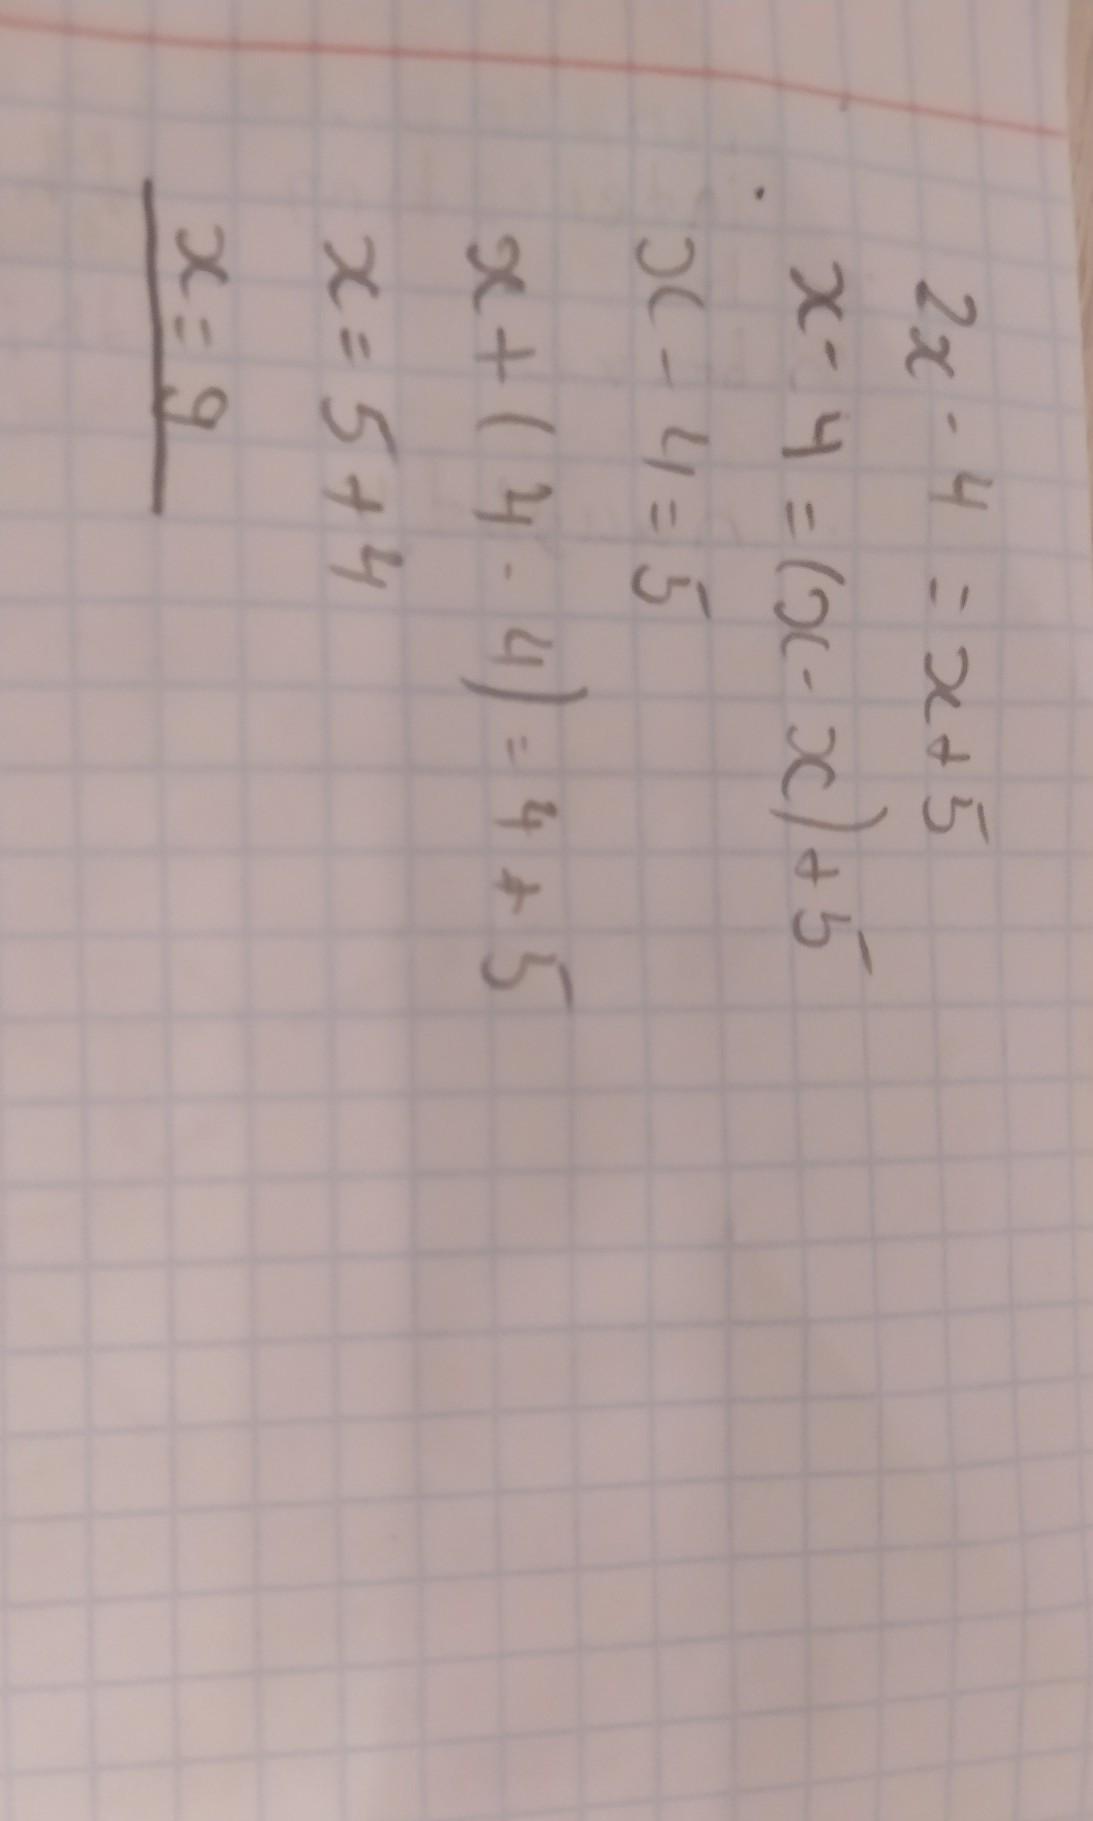 2x - 4 = x + 5
x - 4 = (x - x) + 5
x - 4 = 5
x + (4 - 4) = 4 + 5
x = 5 + 4
x = 9